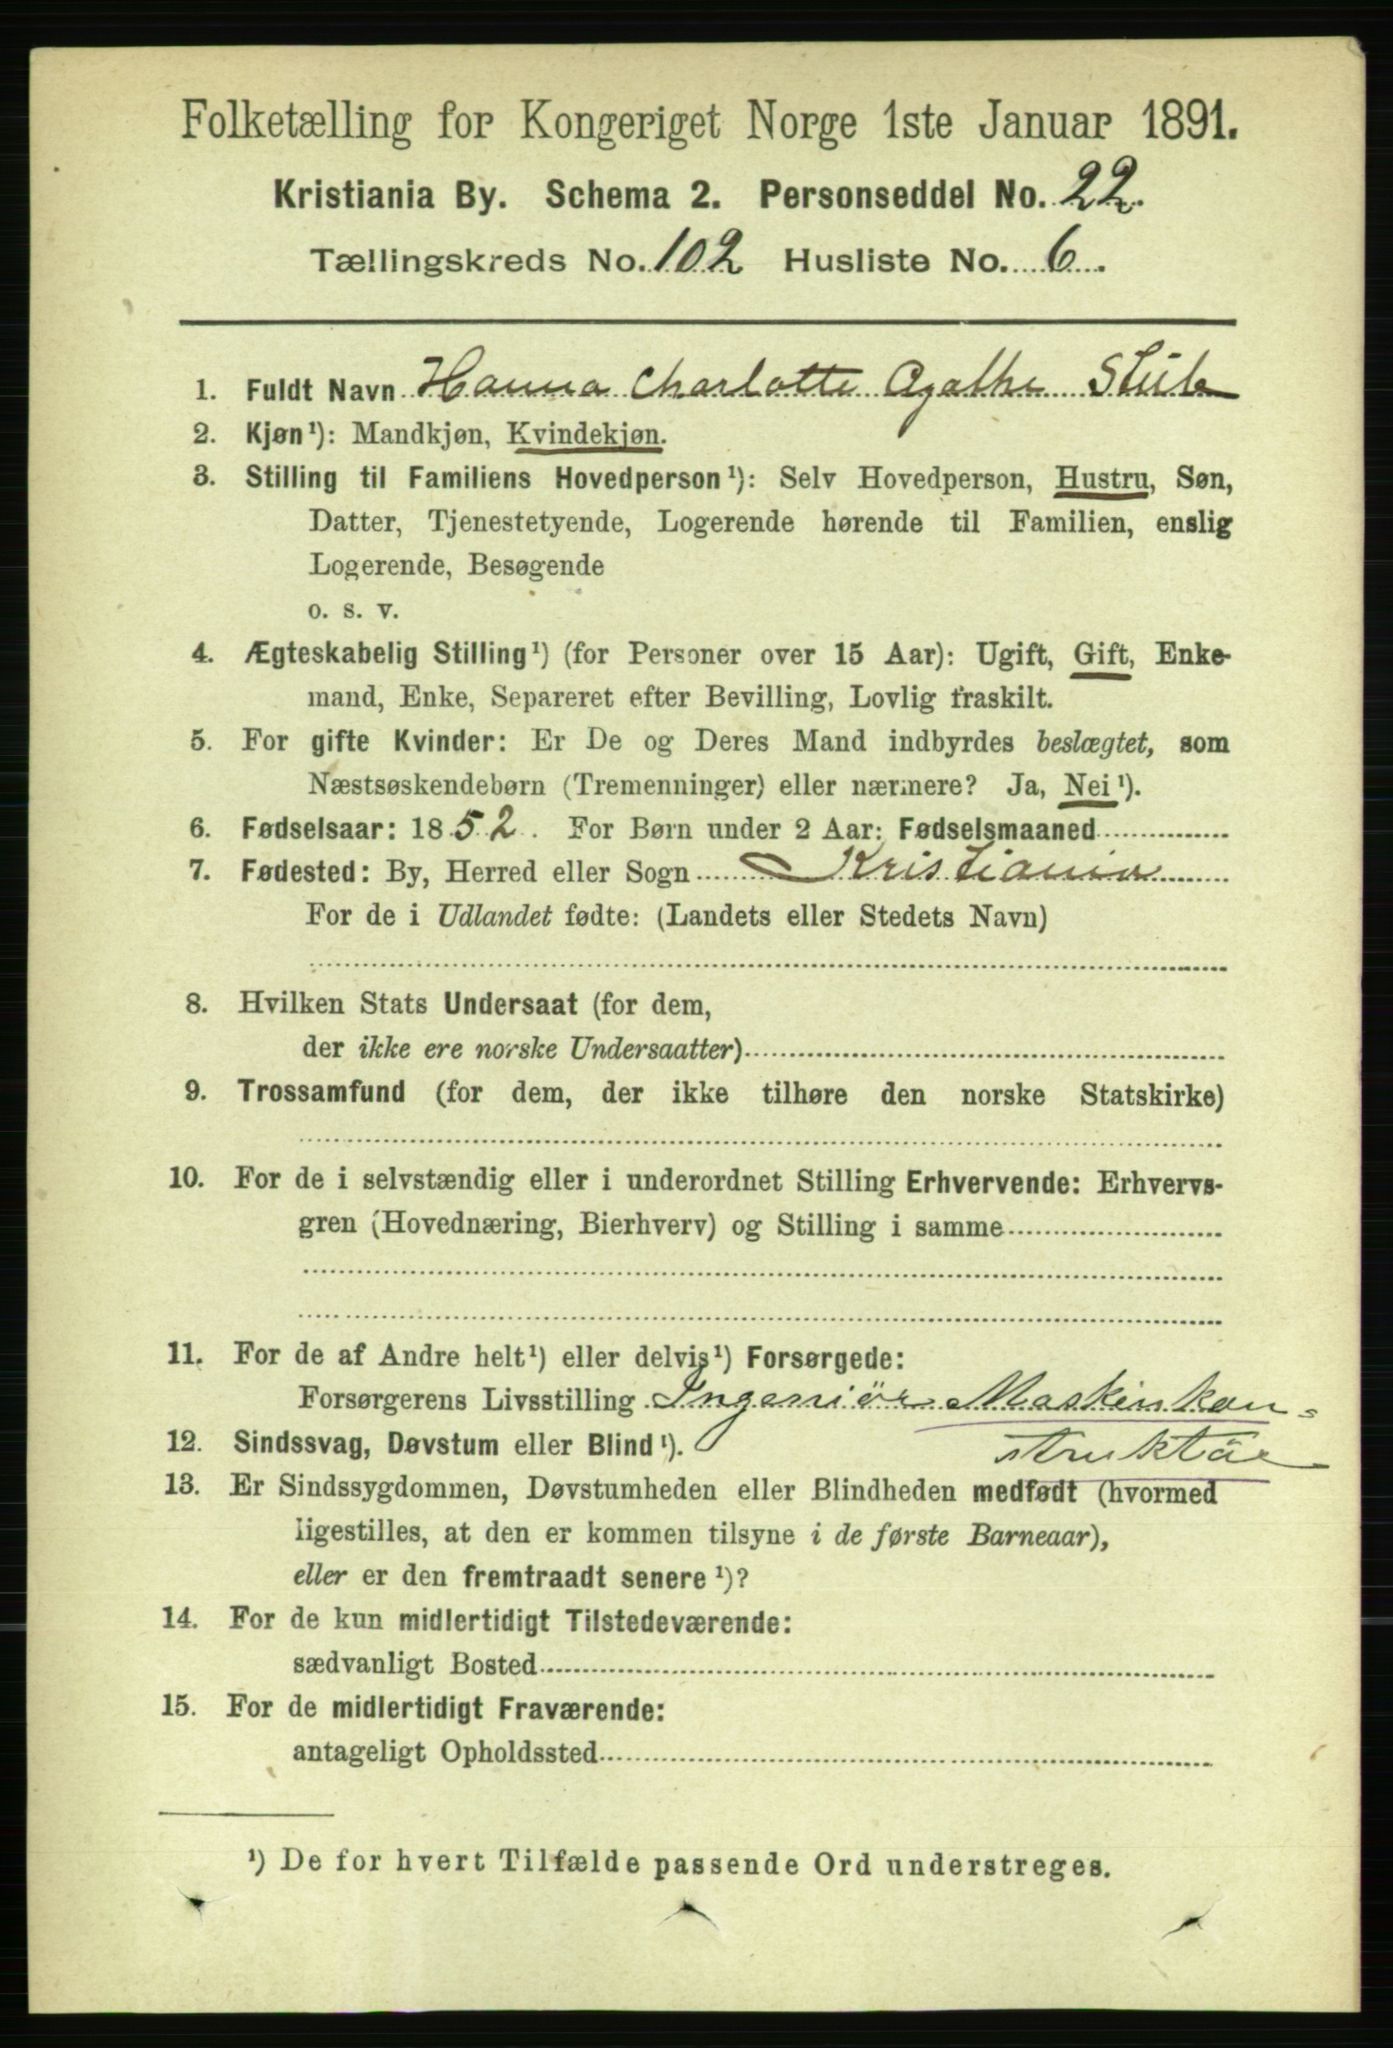 Folketælling for Kongeriget Norge 1ste Januar 1891.
Kristiania By. Schema 2. Personseddel No. 22.
Tællingskreds No. 102 Husliste No. 6.
1. Fuldt Navn Hanna Charlotte Agathe
2. Kjøn¹): Mandkjøn, Kvindekjøn.
3. Stilling til Familiens Hovedperson¹): Selv Hovedperson, Hustru, Søn,
Datter, Tjenestetyende, Logerende hørende til Familien, enslig
Logerende, Besøgende
o. s. v.
4. Ægteskabelig Stilling¹) (for Personer over 15 Aar): Ugift, Gift, Enke-
mand, Enke, Separeret efter Bevilling, Lovlig fraskilt.
5. For gifte Kvinder: Er De og Deres Mand indbyrdes beslægtet, som
Næstsøskendebørn (Tremenninger) eller nærmere? Ja, Nei¹).
6. Fødselsaar: 1852. For Børn under 2 Aar: Fødselsmaaned
7. Fødested: By, Herred eller Sogn Kristiania
For de i Udlandet fødte: (Landets eller Stedets Navn)
8. Hvilken Stats Undersaat (for dem,
der ikke ere norske Undersaatter)
9. Trossamfund (for dem, der ikke tilhøre den norske Statskirke)
10. For de i selvstændig eller i underordnet Stilling Erhvervende: Erhvervs-
gren (Hovednæring, Bierhverv) og Stilling i samme
11. For de af Andre helt¹) eller delvis¹) Forsørgede:
Forsørgerens Livsstilling Ingeniör Maskinkon=
struktör
12. Sindssvag, Døvstum eller Blind¹).
13. Er Sindssygdommen, Døvstumheden eller Blindheden medfødt (hvormed
ligestilles, at den er kommen tilsyne i de første Barneaar),
eller er den fremtraadt senere¹)?
14. For de kun midlertidigt Tilstedeværende:
sædvanligt Bosted
15. For de midlertidigt Fraværende:
antageligt Opholdssted
¹) De for hvert Tilfælde passende Ord understreges.